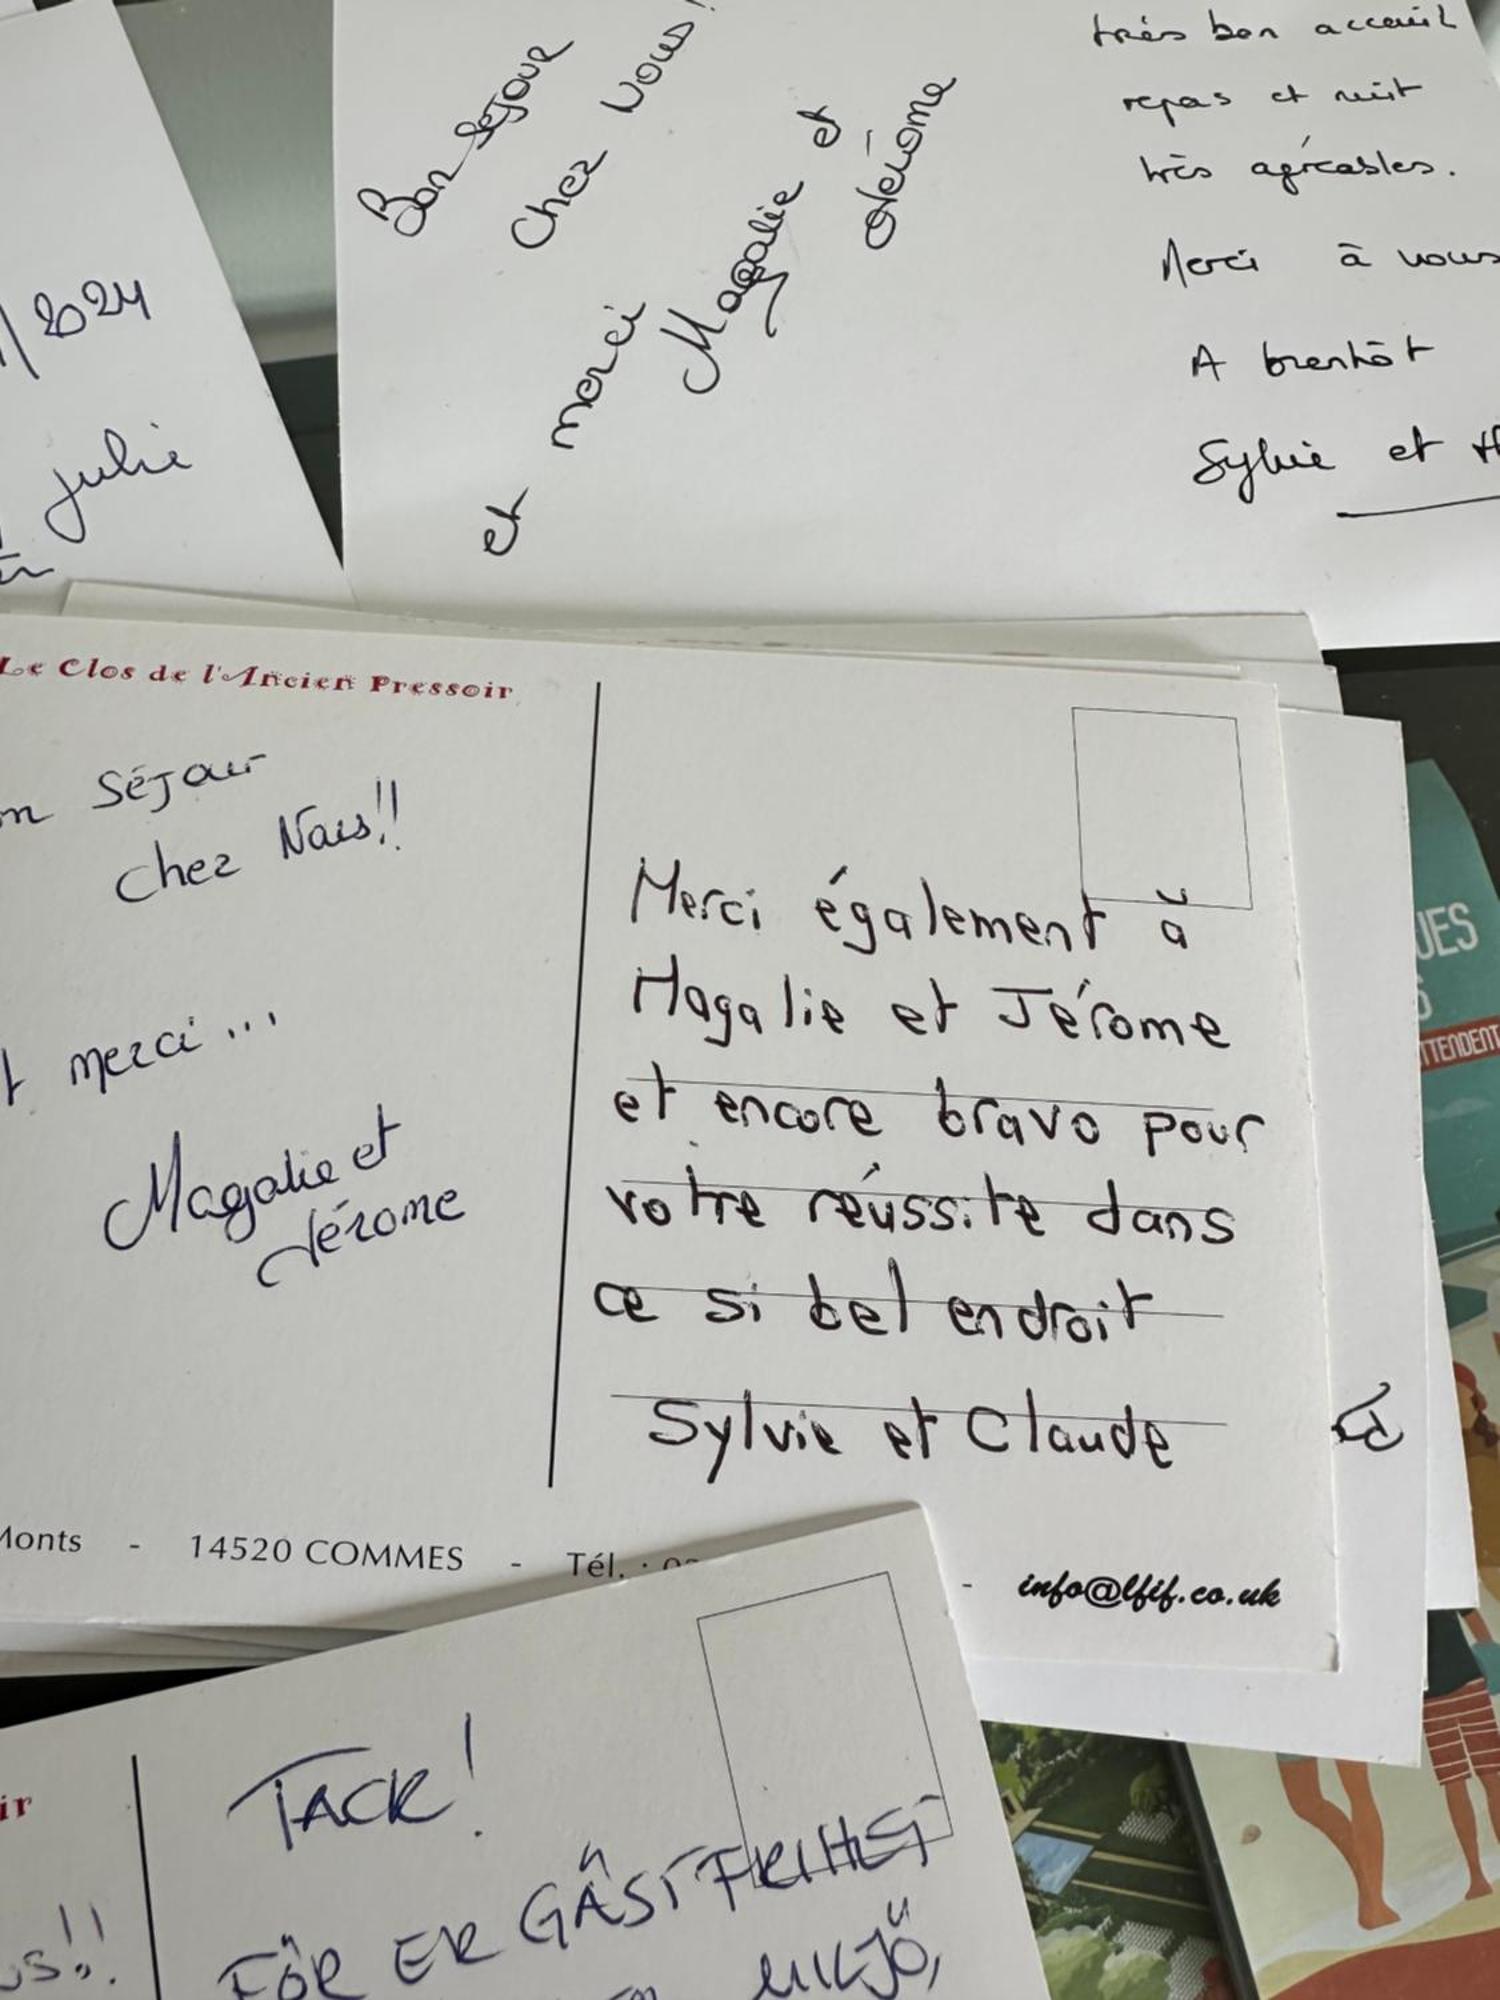 /2024
julie
Bon SéJour
Chez Nous!
et merci
Magalie et
Jérome
très bon acceuil
repas et nuit
très agréables.
Merci à vous
A bientôt
Sylvie et
Le Clos de l'Ancien Pressoir
Séjour
chez Nous!!
merci...
Magalie et
Jérome
Merci également à
Magalie et Jérome
et encore bravo pour
votre réussite dans
ce si bel endroit
Sylvie et Claude
Monts - 14520 COMMES - Tél. : - info@lfif.co.uk
UES
TTENDENT
ir
TACK!
FÖR ER GÄSTFRIHET
MILJÖ,